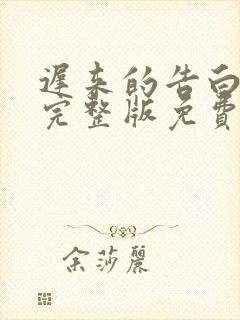 遲来的告白
完整版免費
余莎麗